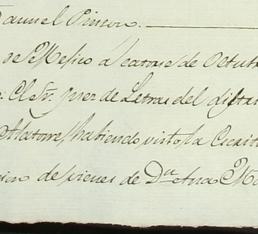 Manuel Pinzon.
de Mexico a catorse de Octub
El Sr. juez de Letras del distr
Alatorre, habiendo visto la Escrit
cion de vienes de Da. Ana M